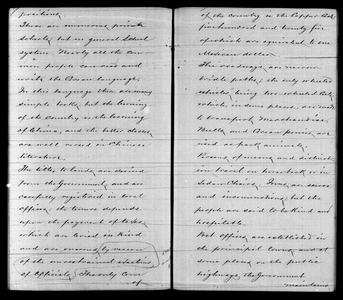 positions.
There are numerous private
schools, but no general school
system. Nearly all the Com-
mon people can read and
write the Corean language.
In this language there are many
simple books, but the learning
of the Country is the learning
of China, and the better classes
are well versed in Chinese
literature.
The titles to lands are derived
from the Government, and are
carefully registered in local
offices, the tenure depends
upon the payment of taxes,
which are levied in kind
and are
of the unrestrained
of Officials. Thereby
of
of the Country is the Copper Cash
five hundred and twenty five
of which are equivalent to one
Mexican dollar.
The roadways are narrow
bridle paths, the only wheeled
vehicles being two wheeled Carts
which in some places, are used
to transport Merchandise.
Bulls and Corean ponies are
used as pack animals.
Persons of means and distinct-
ion travel on horseback or in
Sedan Chairs. Inns are
and incommodious, but the
people are said to be kind and
hospitable.
Post offices are established in
the principal towns, and at
some places on the public
highways, the Government
maintains